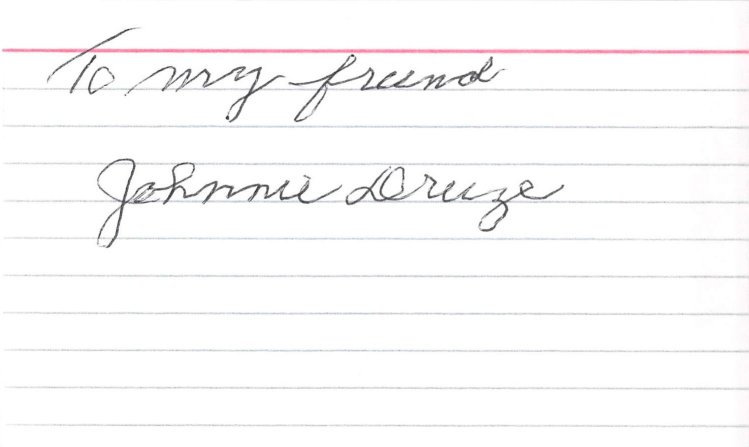 To my friend
Johnnie Druze